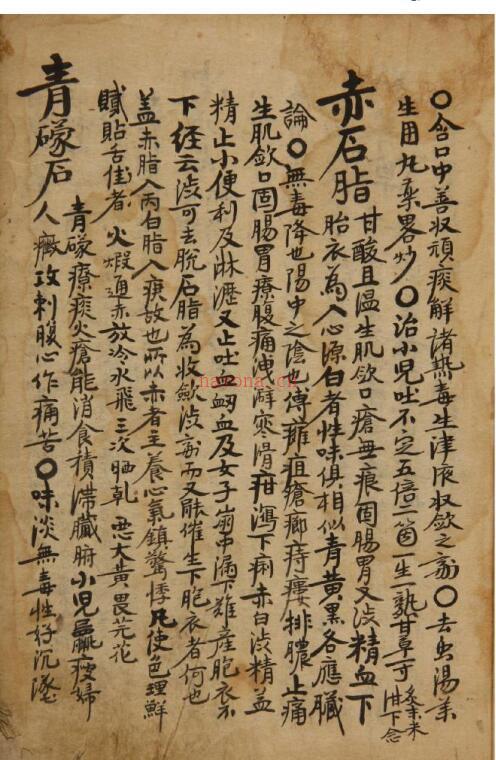 〇含口中善收頑痰解諸熱毒生津液收歛之劑〇去虫湯藥
生用丸藥畧炒〇治小兒吐不定五倍二箇一生一熟甘草寸
炙為末
泔下
赤石脂
甘酸且温生肌歛口瘡無痕固腸胃又澁精血下
胎衣為入心源白者性味俱相似青黃黑各應臟
論〇無毒降也陽中之陰也傅癰疽瘡痔瘻排膿止痛
生肌歛口固腸胃療腹痛洩澼寒滑疳瀉下痢赤白澁精益
精止小便利及淋瀝又止吐血衂血及女子崩中漏下难產胞衣不
下経云澁可去脫石脂為收歛澁劑而又能催生下胞衣者何也
盖赤脂入丙白脂入庚故也所以赤者主養心氣鎮驚悸凡使色理鮮
膩貼舌佳者火煅通赤放冷水飛三次晒乾惡大黃畏芫花
青礞石
青礞療痰火瘡能消食積滞臟腑小兒羸瘦婦
人癥攻刺腹心作痛苦〇味淡無毒性好沉墜